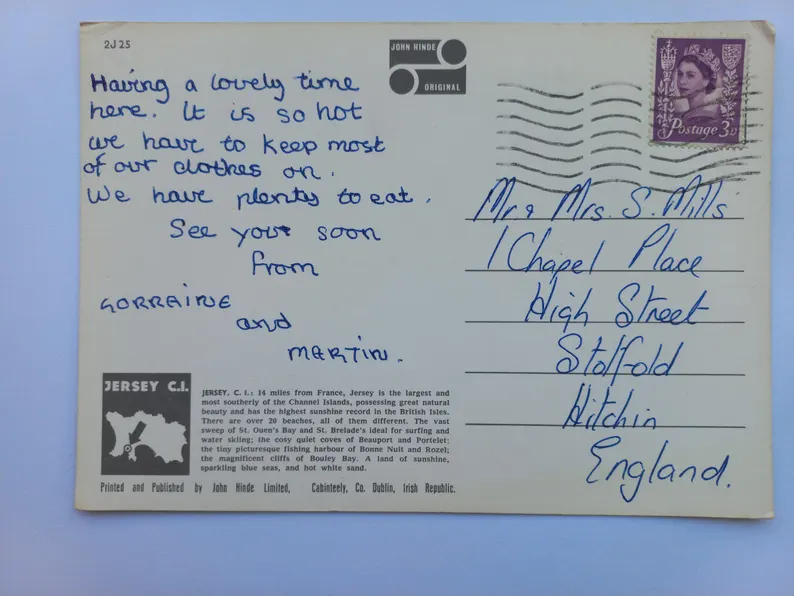 2J25
JOHN HINDE
ORIGINAL
Postage 3D
Having a lovely time
here. It is so hot
we have to keep most
of our clothes on.
We have plenty to eat.
See you soon
from
LORRAINE
and
MARTIN.
Mr & Mrs. S. Mills
1 Chapel Place
High Street
Stotfold
Hitchin
England.
JERSEY C.I.
JERSEY, C. I.: 14 miles from France, Jersey is the largest and
most southerly of the Channel Islands, possessing great natural
beauty and has the highest sunshine record in the British Isles.
There are over 20 beaches, all of them different. The vast
sweep of St. Ouen's Bay and St. Brelade's ideal for surfing and
water skiing; the cosy quiet coves of Beauport and Portelet;
the tiny picturesque fishing harbour of Bonne Nuit and Rozel;
the magnificent cliffs of Bouley Bay. A land of sunshine,
sparkling blue seas, and hot white sand.
Printed and Published by John Hinde Limited, Cabinteely, Co. Dublin, Irish Republic.